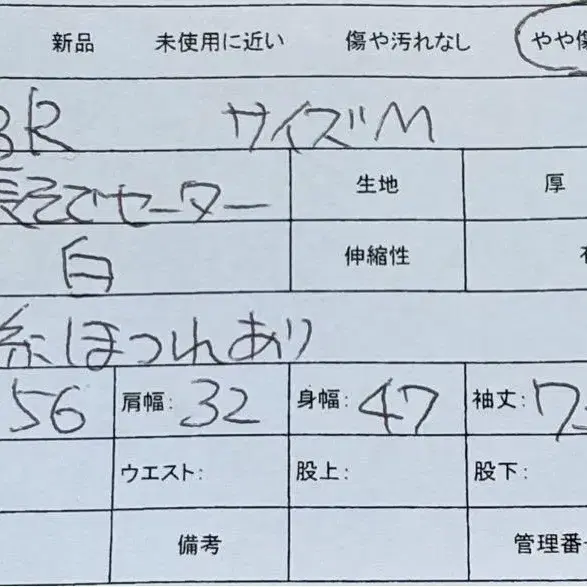 新品 未使用に近い 傷や汚れなし やや傷
BR サイズM
長そでセーター 生地 厚
白 伸縮性
糸ほつれあり
56 肩幅: 32 身幅: 47 袖丈:
ウエスト: 股上: 股下:
備考 管理番